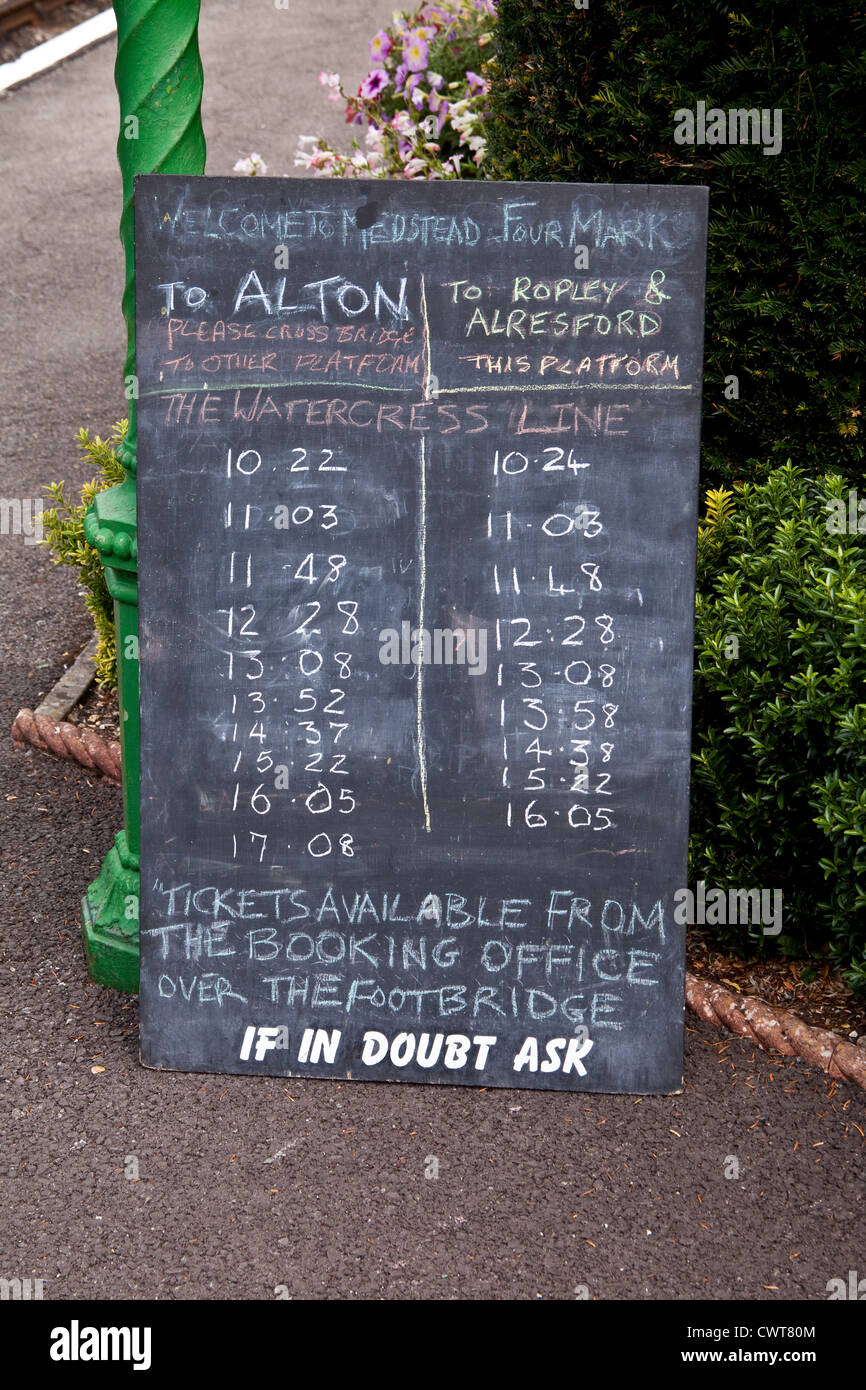 WELCOME TO MEDSTEAD FOUR MARKS
TO ALTON
PLEASE CROSS BRIDGE
TO OTHER PLATFORM
TO ROPLEY &
ALRESFORD
THIS PLATFORM
THE WATERCRESS LINE
10.22 10.24
11.03 11.03
11.48 11.48
12.28 12.28
13.08 13.08
13.52 13.58
14.37 14.38
15.22 15.22
16.05 16.05
17.08
"TICKETS AVAILABLE FROM
THE BOOKING OFFICE
OVER THE FOOTBRIDGE
IF IN DOUBT ASK
alamy
Image ID: CWT80M
www.alamy.com